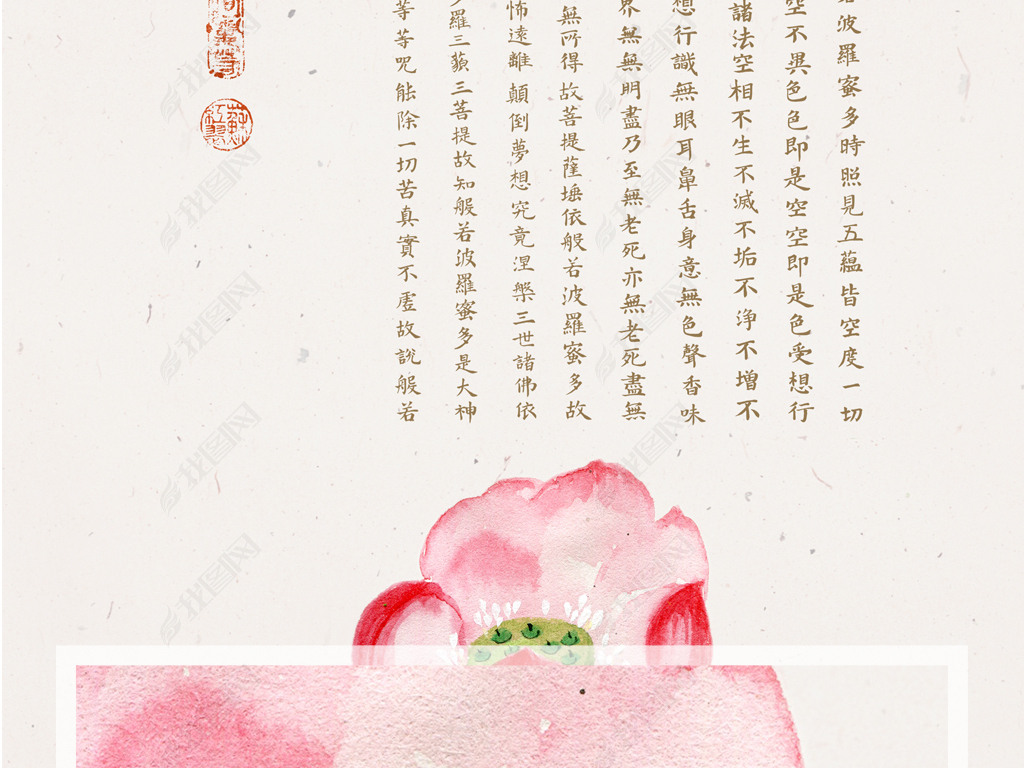 波羅蜜多時照見五蘊皆空度一切
空不異色色即是空空即是色受想行
諸法空相不生不滅不垢不淨不增不
想行識無眼耳鼻舌身意無色聲香味
界無無明盡乃至無老死亦無老死盡無
無所得故菩提薩埵依般若波羅蜜多故
怖遠離顛倒夢想究竟涅槃三世諸佛依
多羅三藐三菩提故知般若波羅蜜多是大神
等等呪能除一切苦真實不虛故說般若
找图网